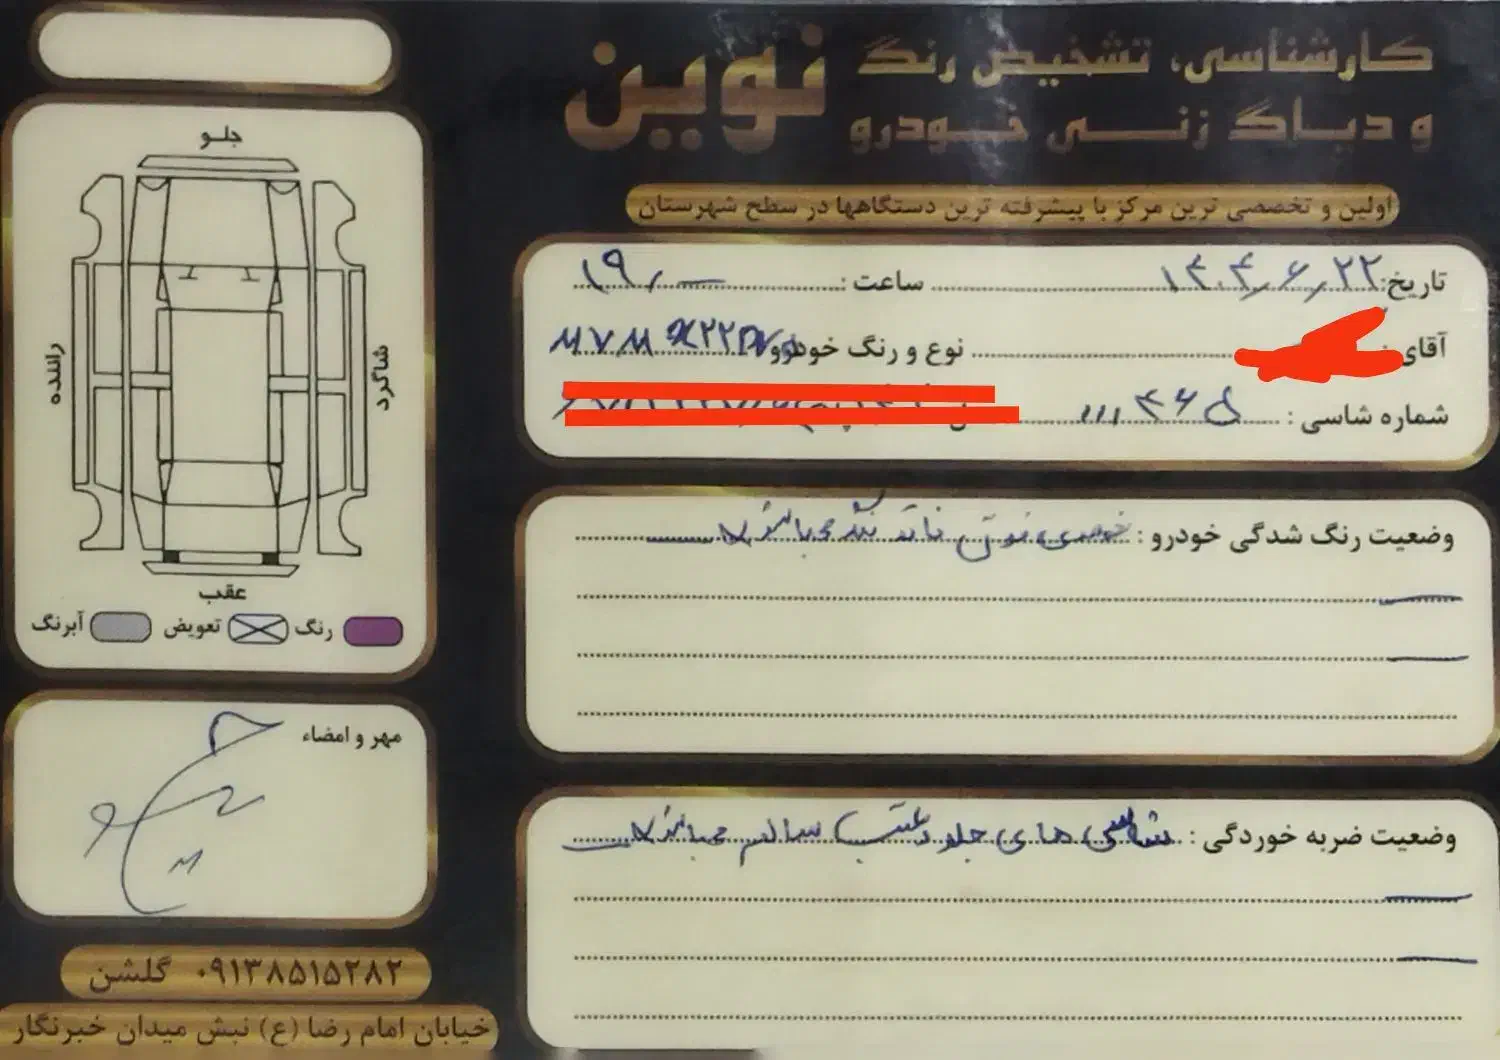 کارشناسی، تشخیص رنگ
و دیاگ زنی خودرو
نوین
اولین و تخصصی ترین مرکز با پیشرفته ترین دستگاهها در سطح شهرستان
تاریخ: ۱۴۰۴/۶/۲۲ ساعت: ۱۹:۰۰
آقای نوع و رنگ خودرو MVM X22
شماره شاسی: ۱۱۱۴۶۵
وضعیت رنگ شدگی خودرو: فاقد رنگ میباشد
وضعیت ضربه خوردگی: شاسی های جلو و عقب سالم میباشد
جلو
راننده
شاگرد
عقب
رنگ تعویض آبرنگ
مهر و امضاء
۰۹۱۳۸۵۱۵۲۸۲ گلشن
خیابان امام رضا (ع) نبش میدان خبرنگار